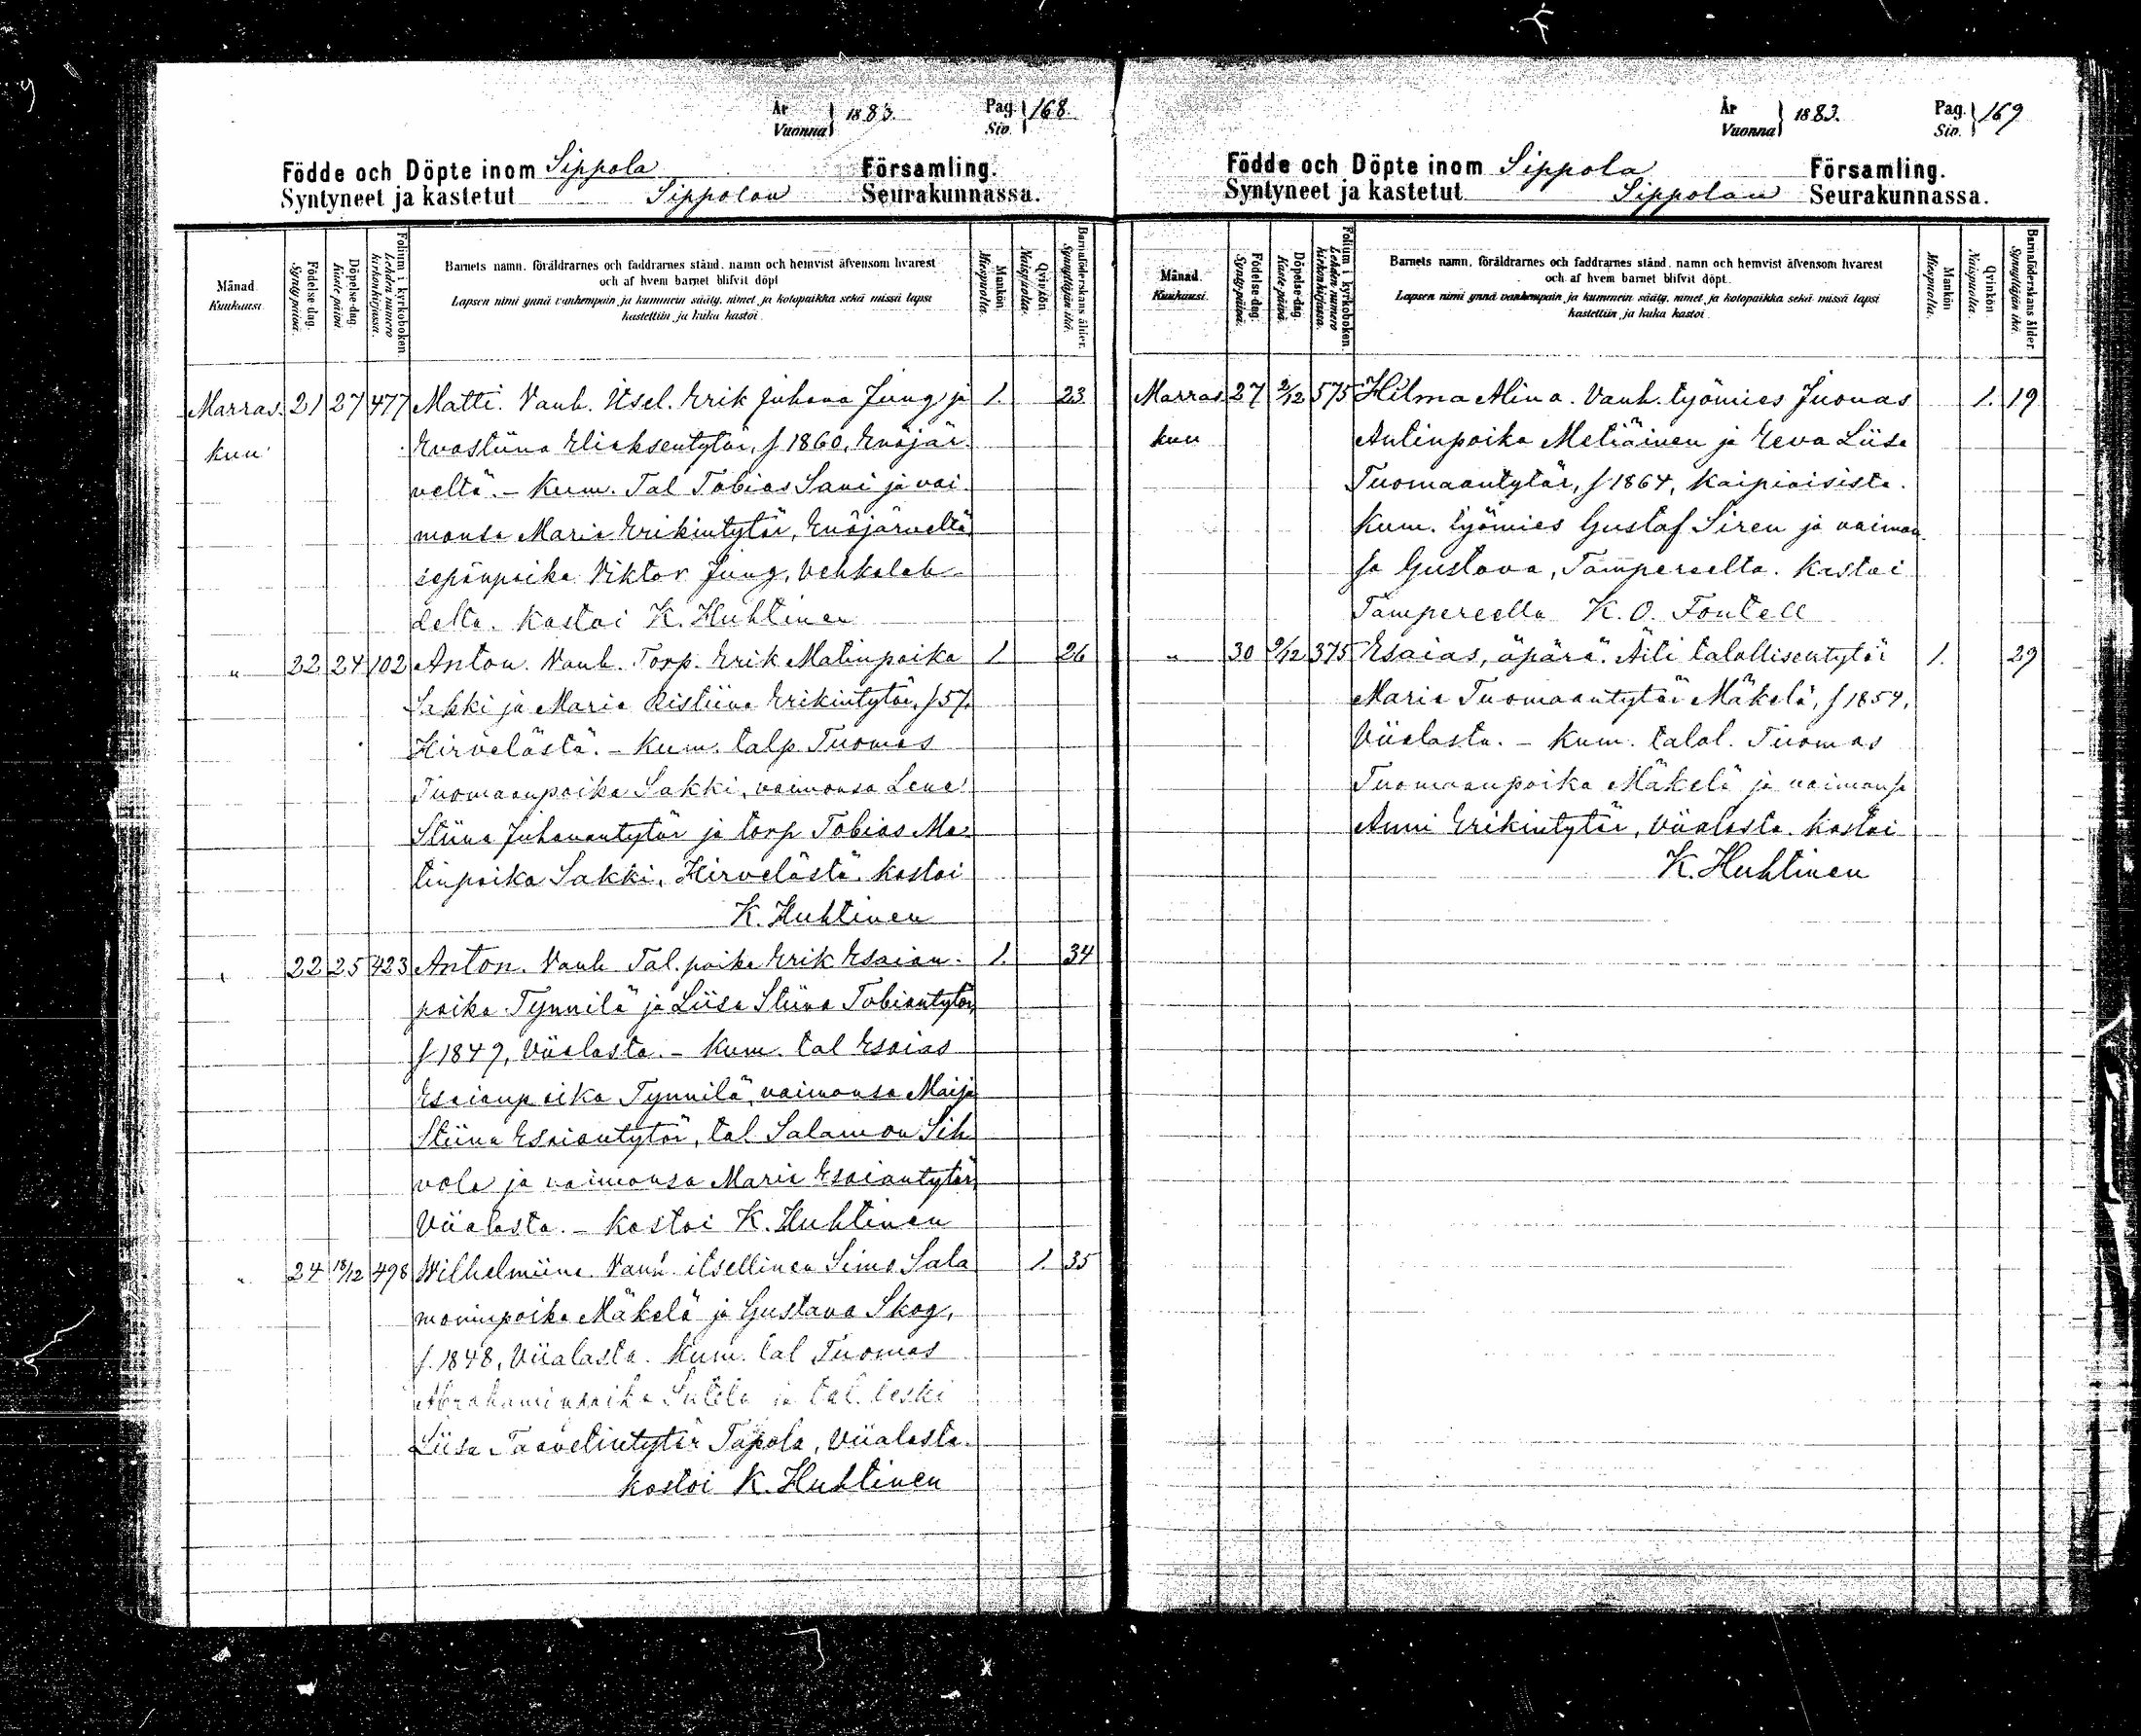 År Vuonna 1883. Pag. Siv. 168.
Födde och Döpte inom Sippola Församling.
Syntyneet ja kastetut Sippolan Seurakunnassa.
Månad. Kuukausi.
Födelse-dag. Synty-päivä.
Döpelse-dag. Kaste-päivä.
Folium i kyrkoboken. Lehden numero kirkonkirjassa.
Barnets namn, föräldrarnes och faddrarnes stånd, namn och hemvist äfvensom hvarest
och af hvem barnet blifvit döpt
Lapsen nimi ynnä vanhempain ja kummein sääty, nimet ja kotopaikka sekä missä lapsi
kastettiin ja kuka kastoi
Mankön. Miespuolta.
Qvinkön. Naispuolta.
Barnaföderskans ålder. Synnyttäjän ikä.
Marras 21 27 477 Matti. Vanh. Itsel. Erik Juhana Jung ja 1. 23
kuu Evastiina Eliaksentytär, f 1860, Enäjär
veltä. - Kum. Tal Tobias Sani ja vai
monsa Maria Erikintytär, Enäjärveltä,
sepänpoika Viktor Jung, Vehkalah
delta. Kastoi K. Huhtinen
" 22 24 102 Anton. Vanh. Torp. Erik Matinpoika 1 26
Sakki ja Maria Ristiina Erikintytär, f 57,
Hirvelästä. - Kum. talp. Tuomas
Tuomaanpoika Sakki, vaimonsa Lena
Stiina Juhanantytär ja torp Tobias Ma
tinpoika Sakki, Hirvelästä. Kastoi
K. Huhtinen
" 22 25 423 Anton. Vanh Tal. poika Erik Esaian 1. 34
poika Tynnilä ja Liisa Stiina Tobiantytär,
f 1849, Viialasta. - Kum. tal Esaias
Esaianpoika Tynnilä, vaimonsa Maija
Stiina Esaiantytär, tal Salamon Sih
vola ja vaimonsa Maria Esaiantytär
Viialasta. - Kastoi K. Huhtinen
" 24 18/12 498 Wilhelmiina Vanh itsellinen Simo Sala 1. 35
moninpoika Mäkelä ja Gustava Skog,
f. 1848, Viialasta. Kum. tal Tuomas
Abrahaminpoika ja tal. leski
Liisa Taavetintytär Tapola, Viialasta.
Kastoi K. Huhtinen
År Vuonna 1883. Pag. Siv. 169
Födde och Döpte inom Sippola Församling.
Syntyneet ja kastetut Sippolan Seurakunnassa.
Månad. Kuukausi.
Födelse-dag. Synty-päivä.
Döpelse-dag. Kaste-päivä.
Folium i kyrkoboken. Lehden numero kirkonkirjassa.
Barnets namn, föräldrarnes och faddrarnes stånd, namn och hemvist äfvensom hvarest
och af hvem barnet blifvit döpt.
Lapsen nimi ynnä vanhempain ja kummein sääty, nimet ja kotopaikka sekä missä lapsi
kastettiin ja kuka kastoi
Mankön. Miespuolta.
Qvinkön. Naispuolta.
Barnaföderskans ålder. Synnyttäjän ikä.
Marras 27 2/12 575 Hilma Alina. Vanh. työmies Juonas 1. 19
kuu Antinpoika Metiäinen ja Eeva Liisa
Tuomaantytär, f 1864, Kaipiaisista.
Kum. työmies Gustaf Siren ja vaimon
sa Gustava, Tampereelta. Kastoi
Tampereella K. O. Fontell
" 30 9/12 375 Esaias, äpärä. Äiti talollisentytär 1. 29
Maria Tuomaantytär Mäkelä, f 1854,
Viialasta. - Kum. talol. Tuomas
Tuomaanpoika Mäkelä ja vaimonsa
Anni Erikintytär, Viialasta. Kastoi
K. Huhtinen